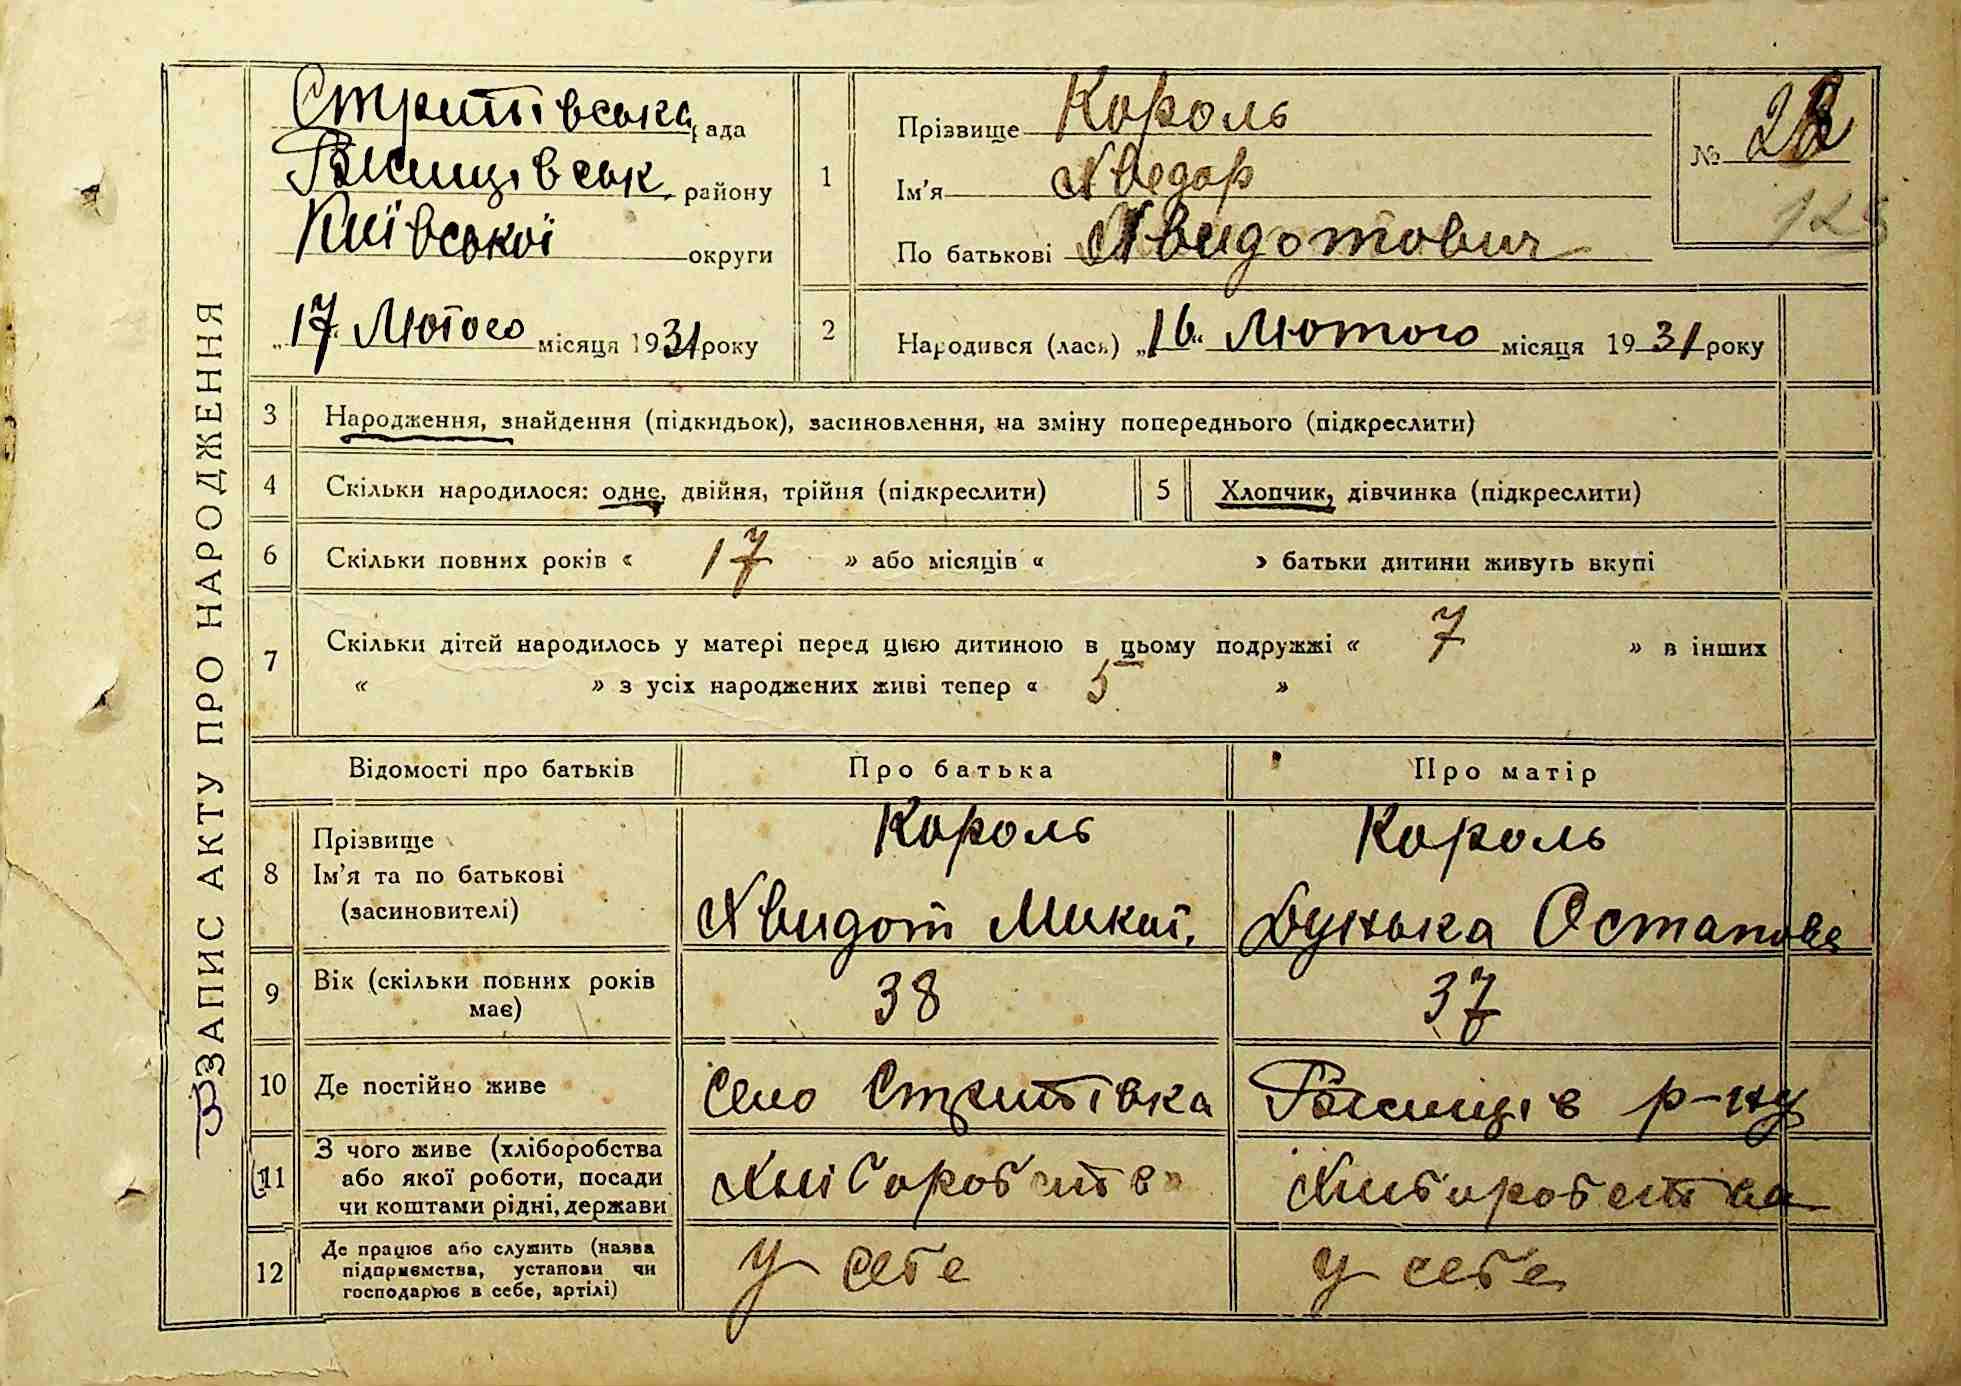 ЗАПИС АКТУ ПРО НАРОДЖЕННЯ
Стритівська рада
Ржищівськ району
Київської округи
„17“ Лютого місяця 1931 року
1
Прізвище Король
Ім'я Хведар
По батькові Хвидотович
№ 28
2
Народився (лась) „16“ Лютого місяця 1931 року
3 Народження, знайдення (підкидьок), засиновлення, на зміну попереднього (підкреслити)
4 Скільки народилося: одне, двійня, трійня (підкреслити) 5 Хлопчик, дівчинка (підкреслити)
6 Скільки повних років « 17 » або місяців « » батьки дитини живуть вкупі
7 Скільки дітей народилось у матері перед цією дитиною в цьому подружжі « 7 » в інших
« » з усіх народжених живі тепер « 5 »
Відомості про батьків Про батька Про матір
8 Прізвище Король Король
Ім'я та по батькові
(засиновителі) Хвидот Микит. Дунька Остапова
9 Вік (скільки повних років має) 38 37
10 Де постійно живе Село Стритівка Ржищів р-ну
11 З чого живе (хліборобства
або якої роботи, посади
чи коштами рідні, держави Хліборобств Хлиборобства
12 Де працює або служить (назва
підприємства, установи чи
господарює в себе, артілі) У себе У себе